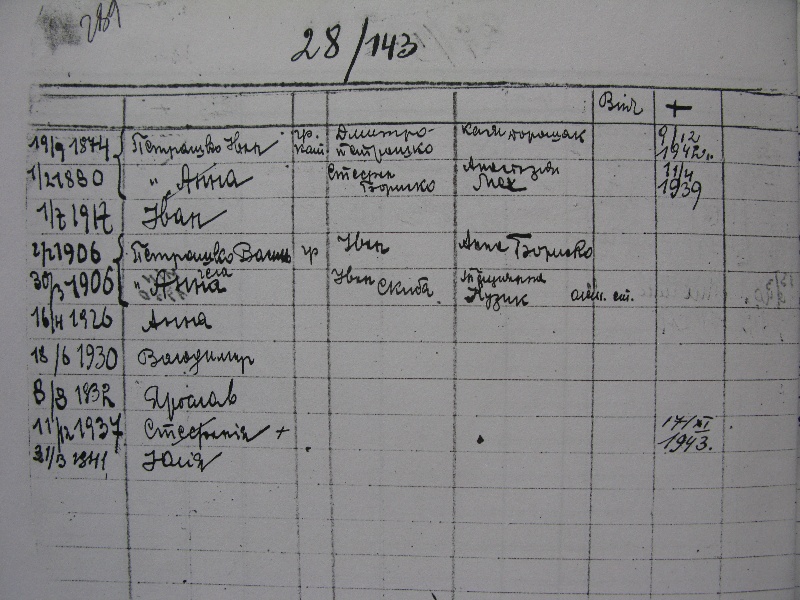 289
28/143
Вінч +
19/9 1874 Петрашко Іван гр. Дмитро- 9/12
кат. Петрашко 1942.
1/2 1880 " Анна Стефан Анастазія 11/4
Бориско Мах 1939
1/7 1917 Іван
2/2 1906 Петрашко Василь гр Іван Анна Бориско
30/3 1906 " Анна Іван Скиба Пузик
16/4 1926 Анна
18/6 1930 Володимир
8/8 1932 Ярослав
11/12 1937 Стефанія + 17/XI
1943.
31/3 1941 Юлія